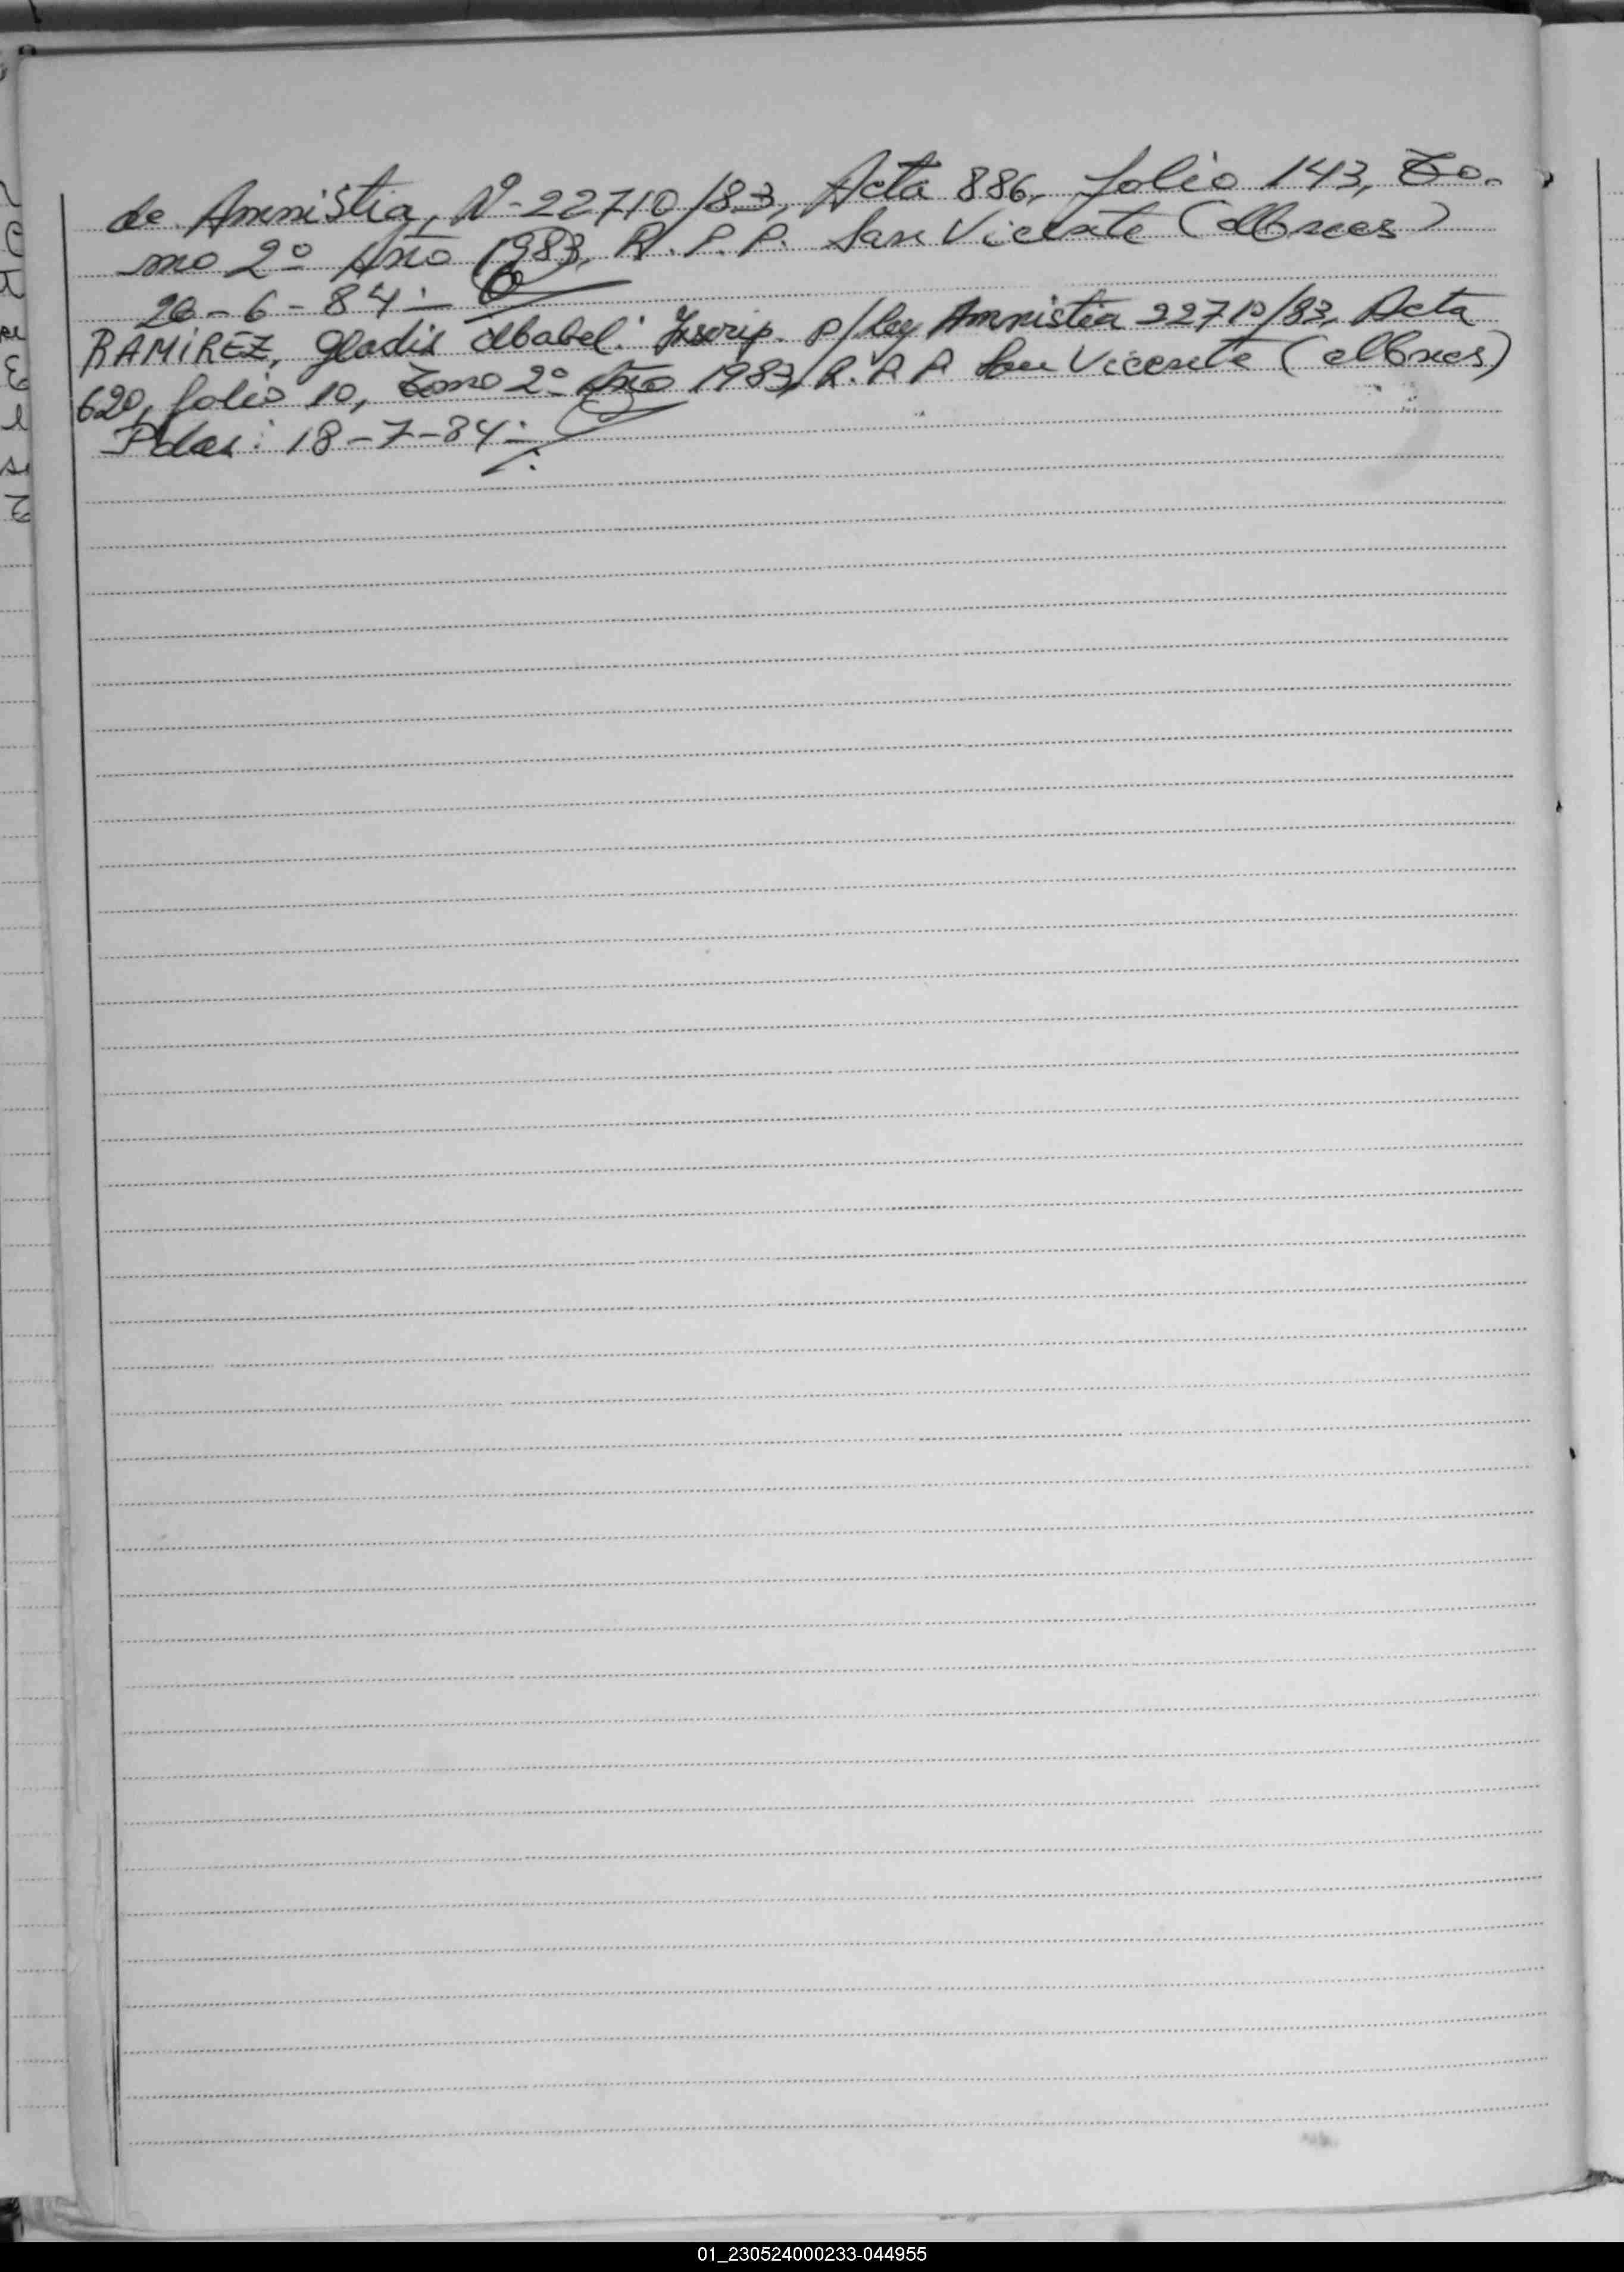 de Amnistia, Nº-22710/83, Acta 886, folio 143, To-
mo 2º Año 1983, R.P.P. San Vicente (Mnes)
26-6-84.-
RAMÍREZ, Gladis Mabel: Inscrip. p/ley Amnistia 22710/83, Acta
620, folio 10, Tomo 2º Año 1983, R.P.P San Vicente (Mnes)
Pdas: 18-7-84.-
01_230524000233-044955